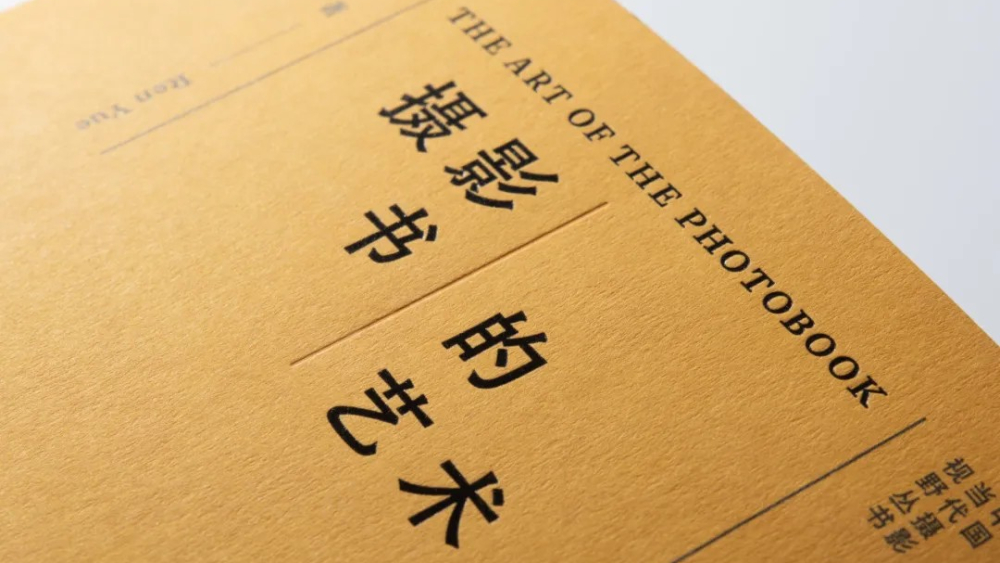 THE ART OF THE PHOTOBOOK
摄影书
的艺术
Ren Yue
中国
当代摄影
视野丛书